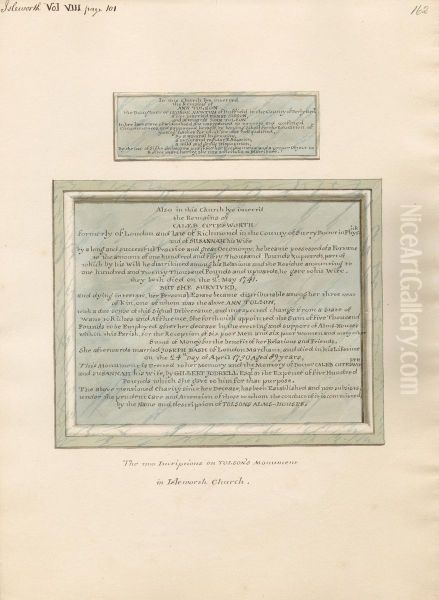 Isleworth Vol VIII page 101
162
In this Church lye interred
the Remains of
ANN TOLSON,
by a natural ingenuity,
a strict and regular Education,
a mild and gentle disposition,
Also in this Church lye interr'd
the Remains of
CALEB COTESWORTH
formerly of London and late of Richmond in the County of Surry Doctor in Physick
and of SUSANNAH his Wife
by a long and successful Practice and great Oeconomy, he became possessed of a Fortune
to the amount of one hundred and Fifty Thousand Pounds & upwards, part of
which by his Will he distributed among his Relations and the Residue amounting to
one hundred and Twenty Thousand Pounds and upwards, he gave to his Wife.
they both died on the 2d. May 1741.
BUT SHE SURVIVED,
and dying intestate, her Personal Estate became distributable among her three next
of Kin, one of whom was the above ANN TOLSON,
with a due sense of this Signal Deliverance, and unexpected change from a State of
Want to Riches and Affluence, She forthwith appointed the Sum of Five Thousand
Pounds to be Employed after her decease in the erecting and support of Alms-Houses
within this Parish, for the Reception of Six poor Men and six poor Women and
Sums of Money for the benefit of her Relations and Friends.
She afterwards married JOSEPH DASH of London Merchant, and died
on the 24th Day of April 1750 Aged 89 years,
This Monument is Erected to her Memory and the Memory of Doctor CALEB COTESWORTH
and SUSANNAH his wife, by GILBERT JODRELL Esqr. at the Expence of Five Hundred
Pounds which She gave to him for that purpose.
The above mentioned Charity since her Decease, has been Established and now subsists,
under the prudent Care and Attention of those to whom the conduct of it is committed,
by the Name and description of TOLSONS ALMS-HOUSES.
The two Inscriptions on TOLSON'S Monument
in Isleworth Church.
NiceArtGallery.com